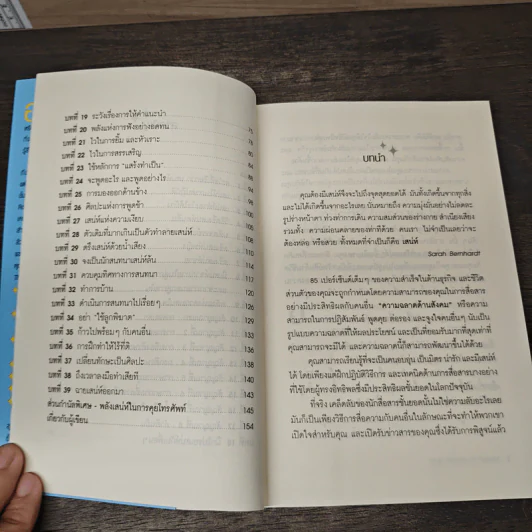 บทที่ 19 ระวังเรื่องการให้คำแนะนำ
บทที่ 20 พลังแห่งการฟังอย่างอดทน 75
บทที่ 21 ไวในการยิ้ม และหัวเราะ
บทที่ 22 ไวในการสรรเสริญ
บทที่ 23 ใช้หลักการ "แสร้งทำเป็น" 84
บทที่ 24 จะพูดอะไร และพูดอย่างไร 88
บทที่ 25 การมองออกด้านข้าง 94
บทที่ 26 ศิลปะแห่งการพูดช้า
บทที่ 27 เสน่ห์แห่งความเงียบ
บทที่ 28 ตัวเติมที่มากเกินเป็นตัวทำลายเสน่ห์
บทที่ 29 ตรึงเสน่ห์ด้วยน้ำเสียง
บทที่ 30 จงเป็นนักสนทนาเสน่ห์ล้น
บทที่ 31 ควบคุมทิศทางการสนทนา
บทที่ 32 ทำการบ้าน 120
บทที่ 33 ดำเนินการสนทนาไปเรื่อยๆ
บทที่ 34 อย่า "ใช้ลูกพิฆาต"
บทที่ 35 ก้าวไปพร้อมๆ กับคนอื่น
บทที่ 36 การฝึกทำให้ไร้ที่ติ 133
บทที่ 37 เปลี่ยนทักษะเป็นศิลปะ 136
บทที่ 38 ถึงเวลาลงมือทำเสียที 140
บทที่ 39 ฉายเสน่ห์ออกมา 143
ส่วนกำนัลพิเศษ - พลังเสน่ห์ในการคุยโทรศัพท์ 145
เกี่ยวกับผู้เขียน 154
บทนำ
คุณต้องมีเสน่ห์จึงจะไปถึงจุดสุดยอดได้ มันทั้งเกิดขึ้นจากทุกสิ่ง
และไม่ได้เกิดขึ้นจากอะไรเลย มันหมายถึง ความมุ่งมั่นอย่างไม่ลดละ
รูปร่างหน้าตา ท่วงท่าการเดิน ความสมส่วนของร่างกาย สำเนียงเสียง
รวมทั้ง ความผ่อนคลายของท่าทีด้วย คนเรา ไม่จำเป็นเลยว่าจะ
ต้องหล่อ หรือสวย ทั้งหมดที่จำเป็นก็คือ เสน่ห์
Sarah Bernhardt
85 เปอร์เซ็นต์เต็มๆ ของความสำเร็จในด้านธุรกิจ และชีวิต
ส่วนตัวของคุณจะถูกกำหนดโดยความสามารถของคุณในการสื่อสาร
อย่างมีประสิทธิผลกับคนอื่น "ความฉลาดด้านสังคม" หรือความ
สามารถในการปฏิสัมพันธ์ พูดคุย ต่อรอง และจูงใจคนอื่นๆ นับเป็น
รูปแบบความฉลาดที่ให้ผลประโยชน์ และเป็นที่ยอมรับมากที่สุดเท่าที่
คุณสามารถจะมีได้ และความฉลาดนี้ก็สามารถพัฒนาขึ้นได้ด้วย
คุณสามารถเรียนรู้ที่จะเป็นคนอบอุ่น เป็นมิตร น่ารัก และมีเสน่ห์
ได้ โดยเพียงแต่ฝึกปฏิบัติวิธีการ และเทคนิคด้านการสื่อสารบางอย่าง
ที่ใช้โดยผู้ทรงอิทธิพลซึ่งมีประสิทธิผลชั้นยอดในโลกปัจจุบัน
ที่จริง เคล็ดลับของนักสื่อสารชั้นยอดนั้นไม่ใช่ความลับอะไรเลย
มันก็เป็นเพียงวิธีการสื่อความกับคนอื่นในลักษณะที่จะทำให้พวกเขา
เปิดใจสำหรับคุณ และเปิดรับข่าวสารของคุณซึ่งได้รับการพิสูจน์แล้ว